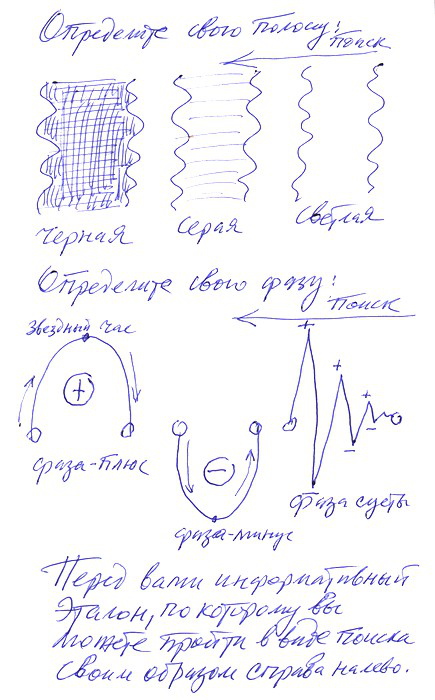 Определите свою полосу:
Поиск
Черная
Серая
Светлая
Определите свою фазу:
Поиск
Звездный час
+
фаза-плюс
-
фаза-минус
+
+
+
-
-
Фаза суеты
Перед вами информативный
Эталон, по которому вы
можете пройти в виде поиска
своим образом справа налево.